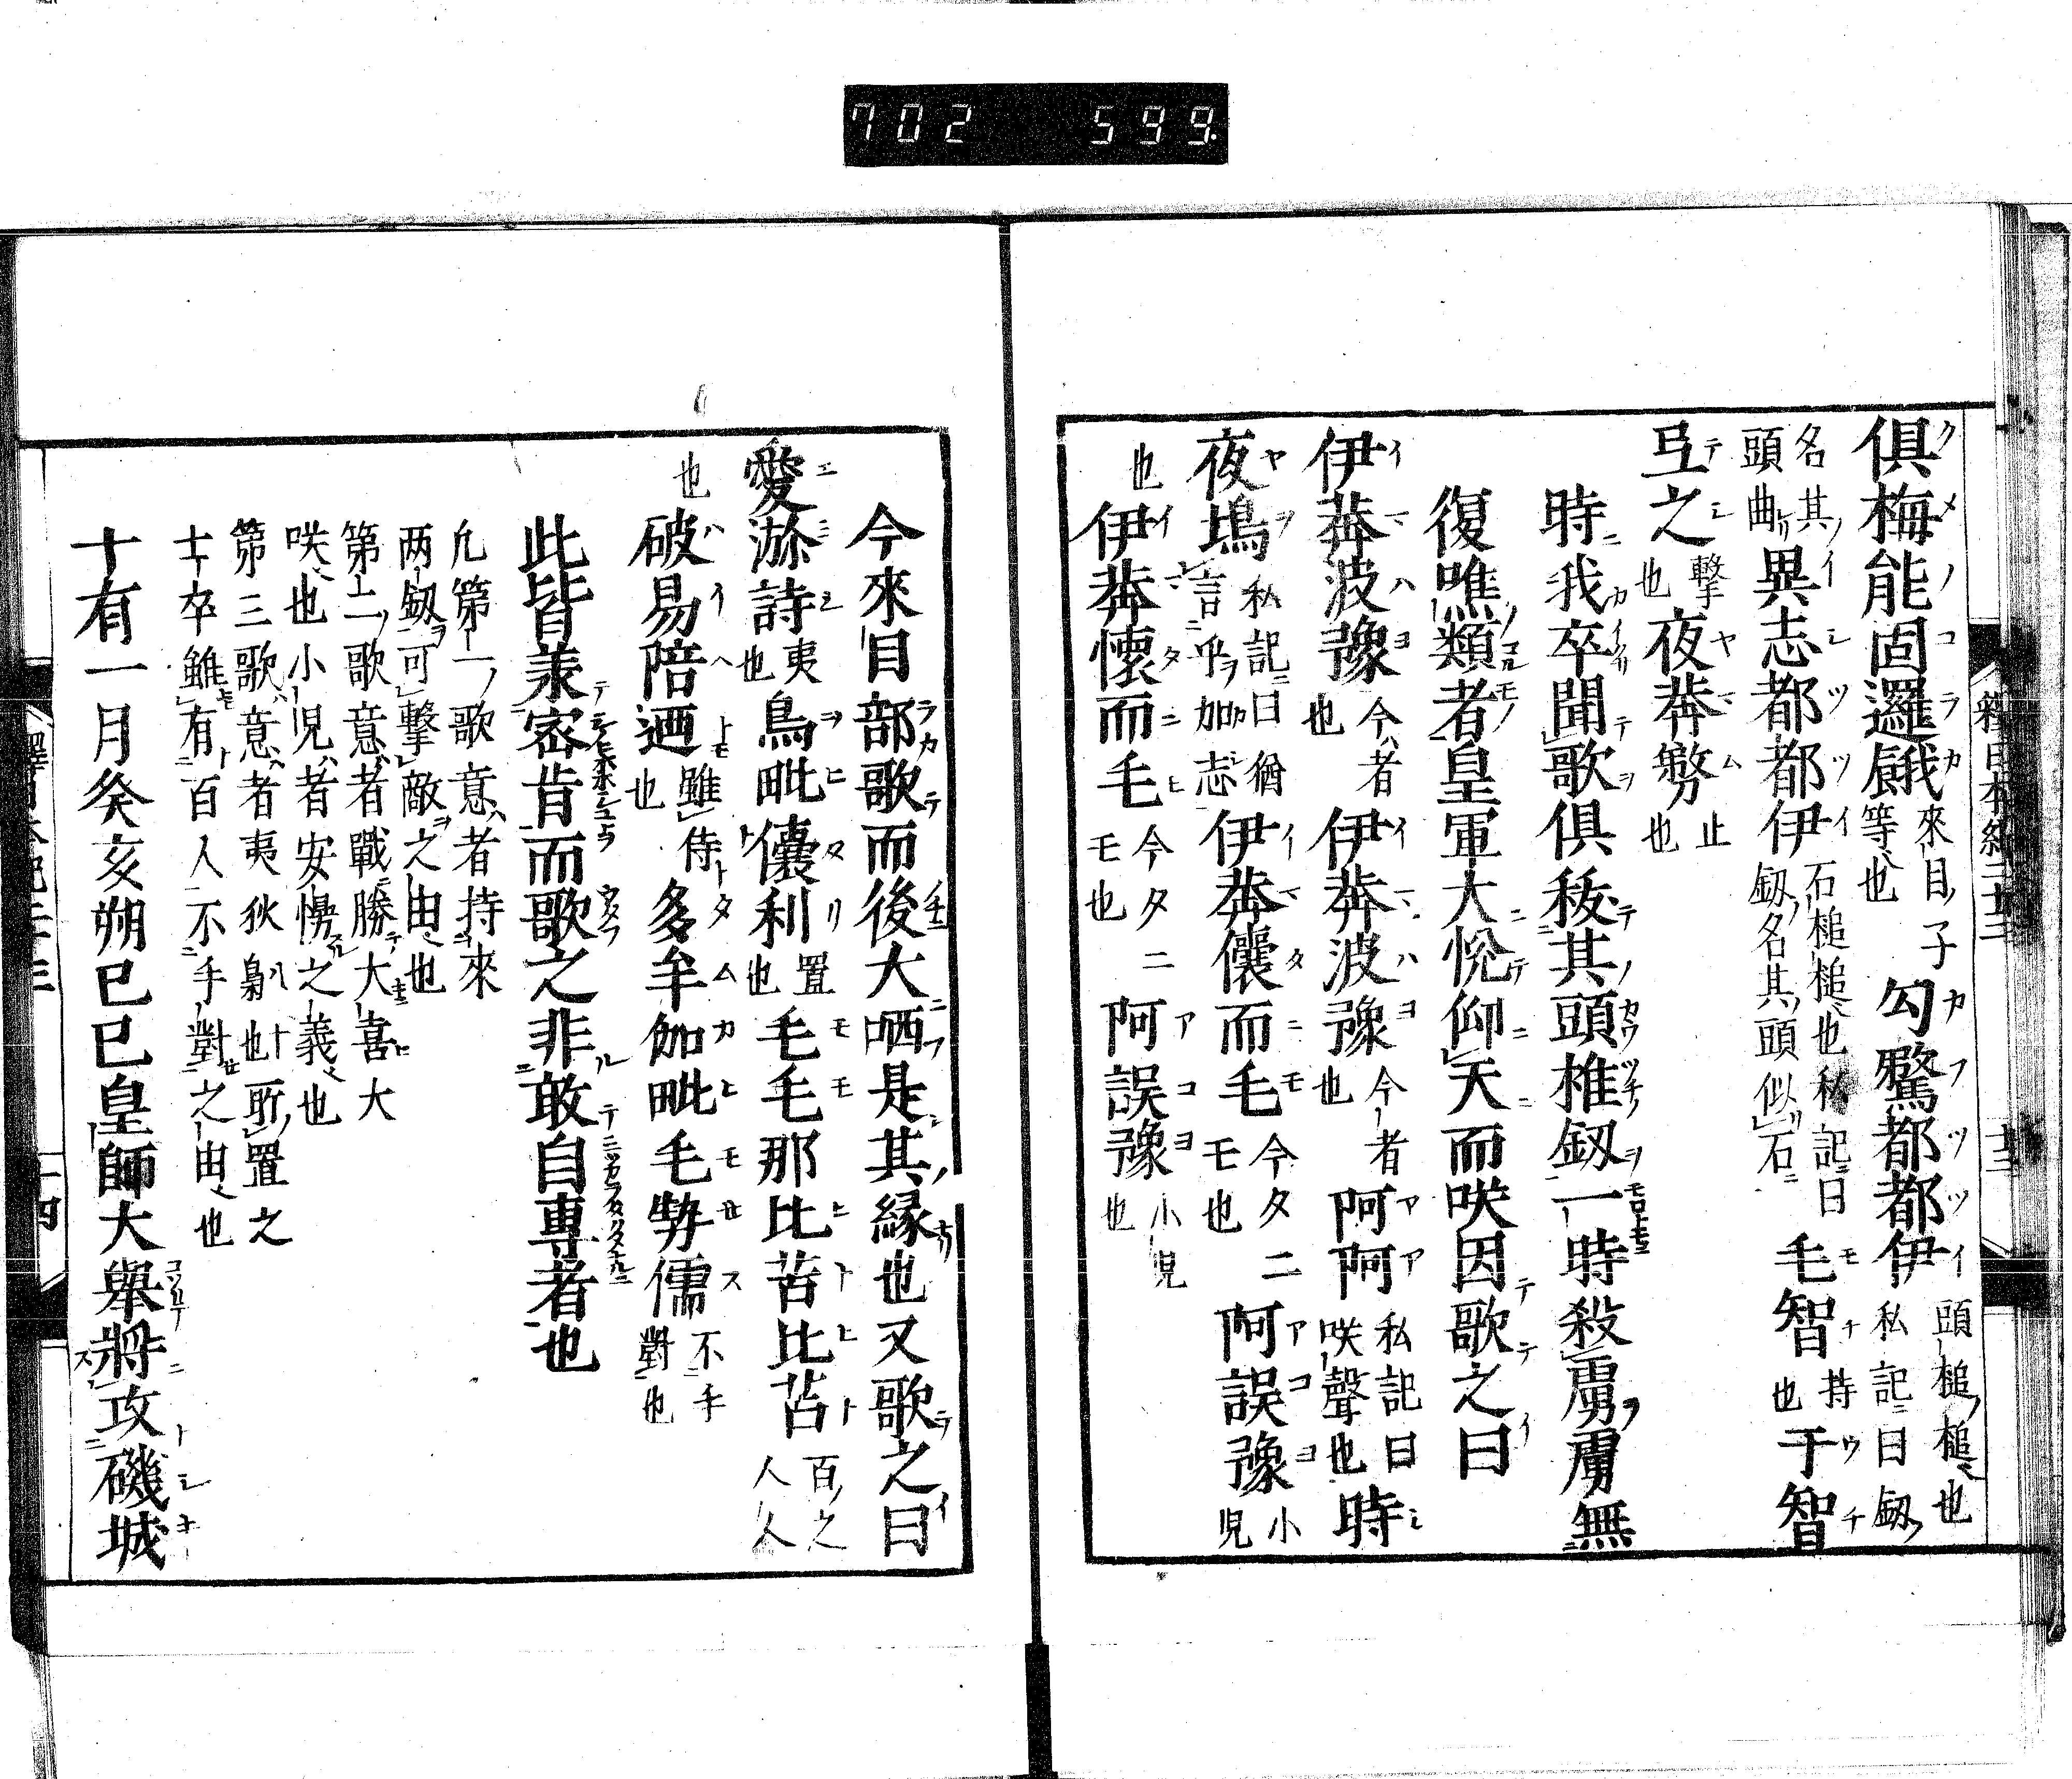 702 599.
俱梅能固邏餓來目子等也勾騖都都伊頭槌槌也私記曰釼
名其頭曲異志都都伊石槌槌也私記曰釼名其頭似石毛智持也于智
弖之擊也夜莽務止也
時我卒聞歌俱拔其頭椎釼一時殺虜虜無
復噍類者皇軍大悅仰天而咲因歌之曰
伊莽波豫今者也伊莽波豫今者也阿阿私記曰咲聲也時
夜塢私記曰猶言乎加志伊莽儾而毛今タニモ也阿誤豫小兒
也伊莽懷而毛今タニモ也阿誤豫小兒也
今來目部歌而後大哂是其緣也又歌之曰
愛瀰詩夷也烏毗儾利置也毛毛那比苔比苔百之人人
也破易陪廼雖侍也多牟伽毗毛勢儒不手對也
此皆羕密旨而歌之非敢自專者也
凢第一歌意者持來
两釼可擊敵之由也
第二歌意者戰勝大喜大
咲也小兒者安慢之義也
第三歌意者夷狄梟也所置之
士卒雖有百人不手對之由也
十有一月癸亥朔己巳皇師大舉將攻磯城
釋日本紀二十三
十三
十四